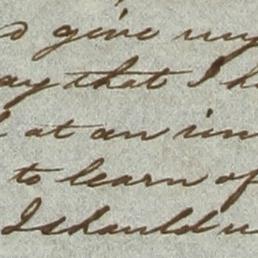 give my
that I
at an
to learn of
I should